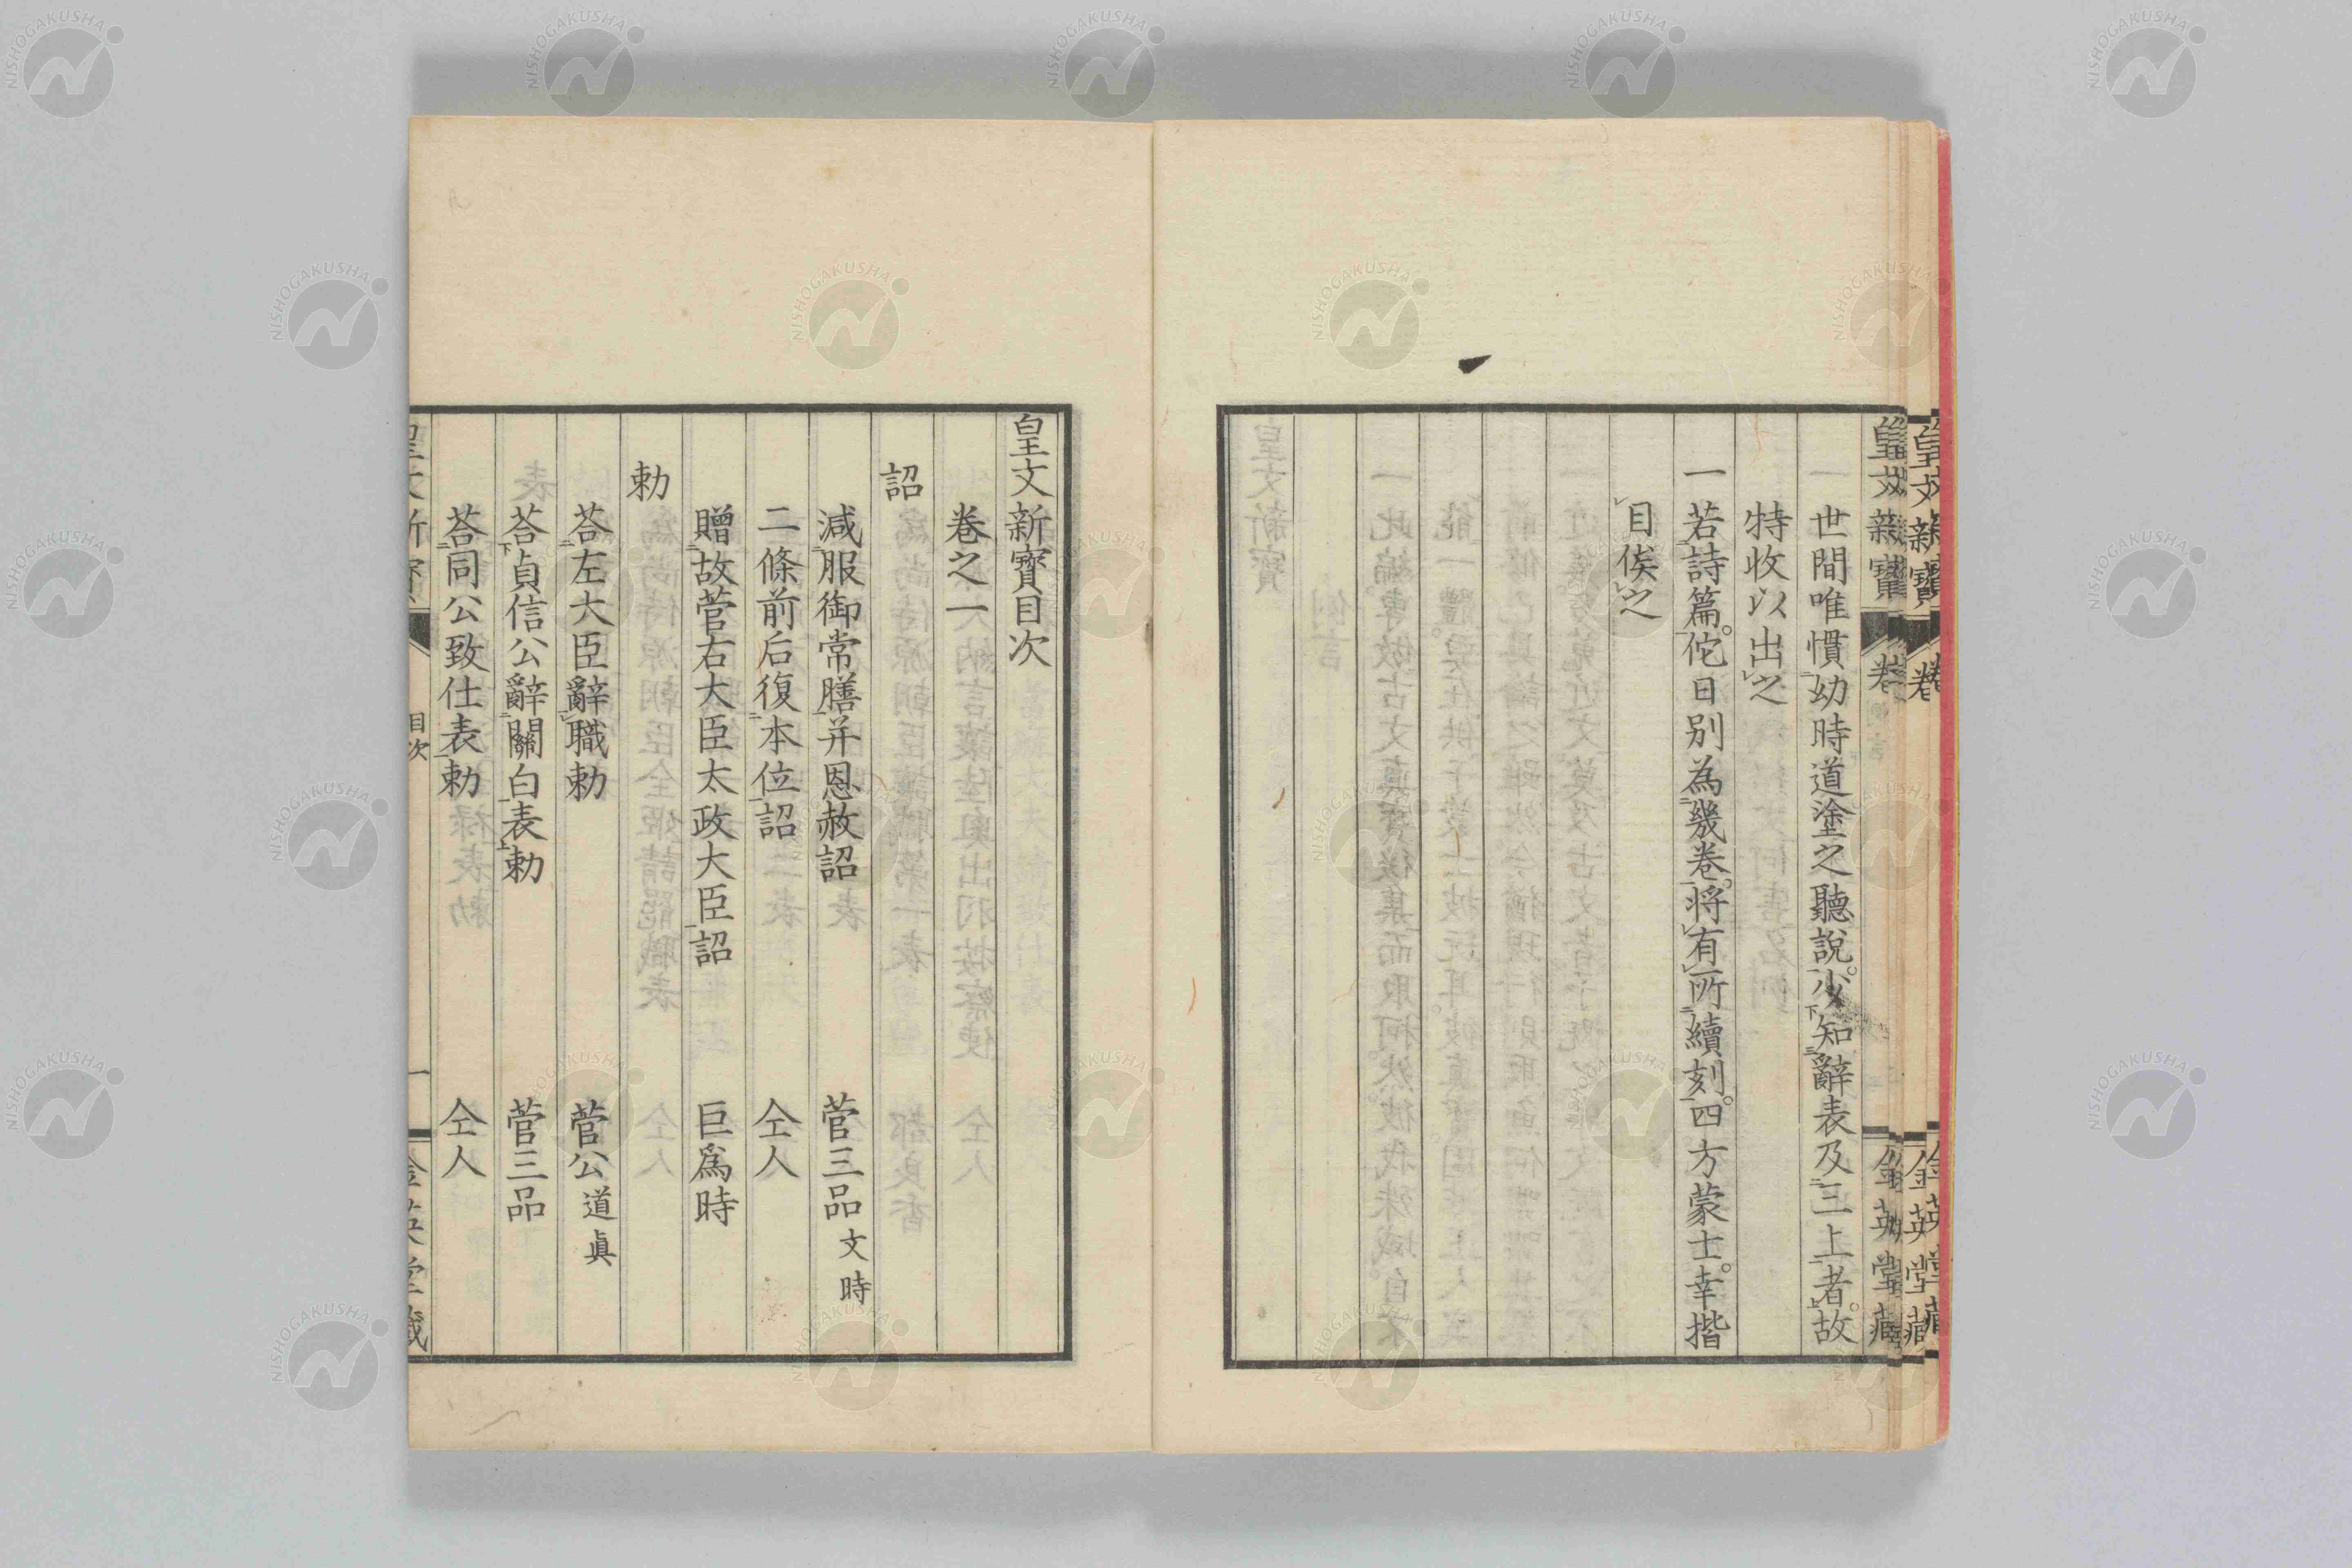 世間唯慣幼時道塗之聽說。少知辭表及三上者。故
特收以出之
一若詩篇。佗日別為幾卷。將有所續刻。四方蒙士。幸揩
目俟之
皇文新寶目次
卷之一
詔
減服御常膳并恩赦詔 菅三品文時
二條前后復本位詔 仝人
贈故菅右大臣太政大臣詔 巨爲時
勅
荅左大臣辭職勅 菅公道眞
荅貞信公辭關白表勅 菅三品
荅同公致仕表勅 仝人
皇文新寶 目次 一 金英堂藏